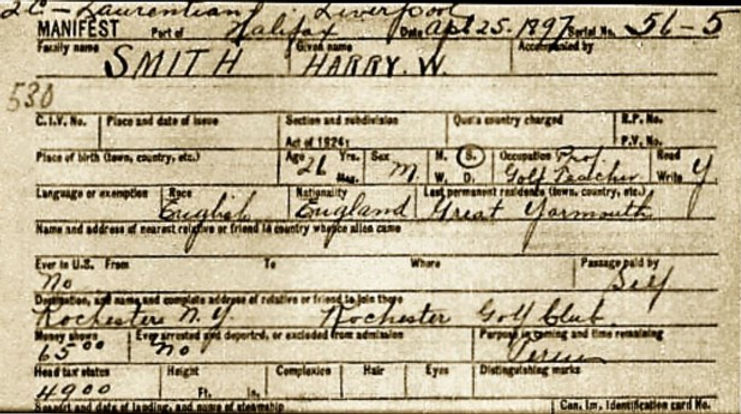 2C - Laurentian - Liverpool
MANIFEST Port of Halifax Date Apl 25. 1897 Serial No. 56-5
Family name Given name Accompanied by
SMITH HARRY. W.
530
C.I.V. No. Place and date of issue Section and subdivision Quota country charged R.P. No.
Act of 1924: P.V. No.
Place of birth (town, country, etc.) Age 26 Yrs. Mos. Sex M. M. S. W. D. Occupation Prof Golf Teacher Read Write Y
Language or exemption Race Nationality Last permanent residence (town, country, etc.)
English England Great Yarmouth
Name and address of nearest relative or friend in country whence alien came
Ever in U.S. From To Where Passage paid by
No Self
Destination, and name and complete address of relative or friend to join there
Rochester N.Y Rochester Golf Club
Money shown Ever arrested and deported, or excluded from admission Purpose in coming and time remaining
65 00 No
Head tax status Height Complexion Hair Eyes Distinguishing marks
49 00 Ft. In.
Seaport and date of landing, and name of steamship Can. Im. Identification card No.